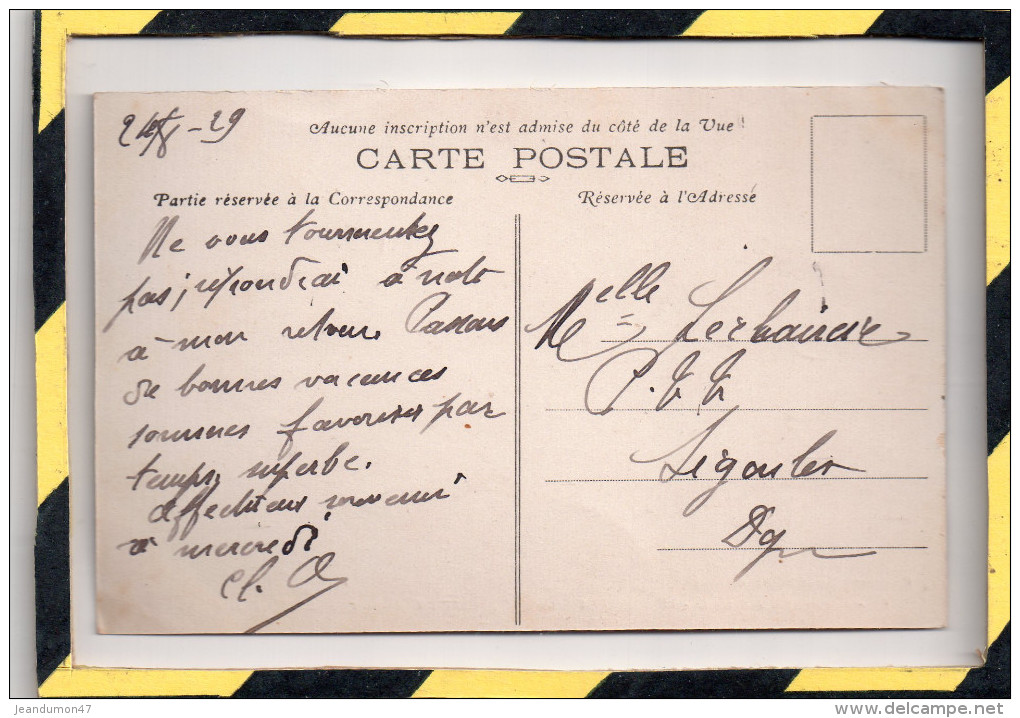 24/8-29
Aucune inscription n'est admise du côté de la Vue
CARTE POSTALE
Partie réservée à la Correspondance
Réservée à l'Adresse
Ne vous tourmentez
pas, répondrai à
à mon retour. Passons
de bonnes vacances
sommes favorisés par
temps superbe.
Affectueux souvenir
à mercredi
Melle
P.T.T
Sigoulès
Dgne
jeandumon47
www.delcampe.net